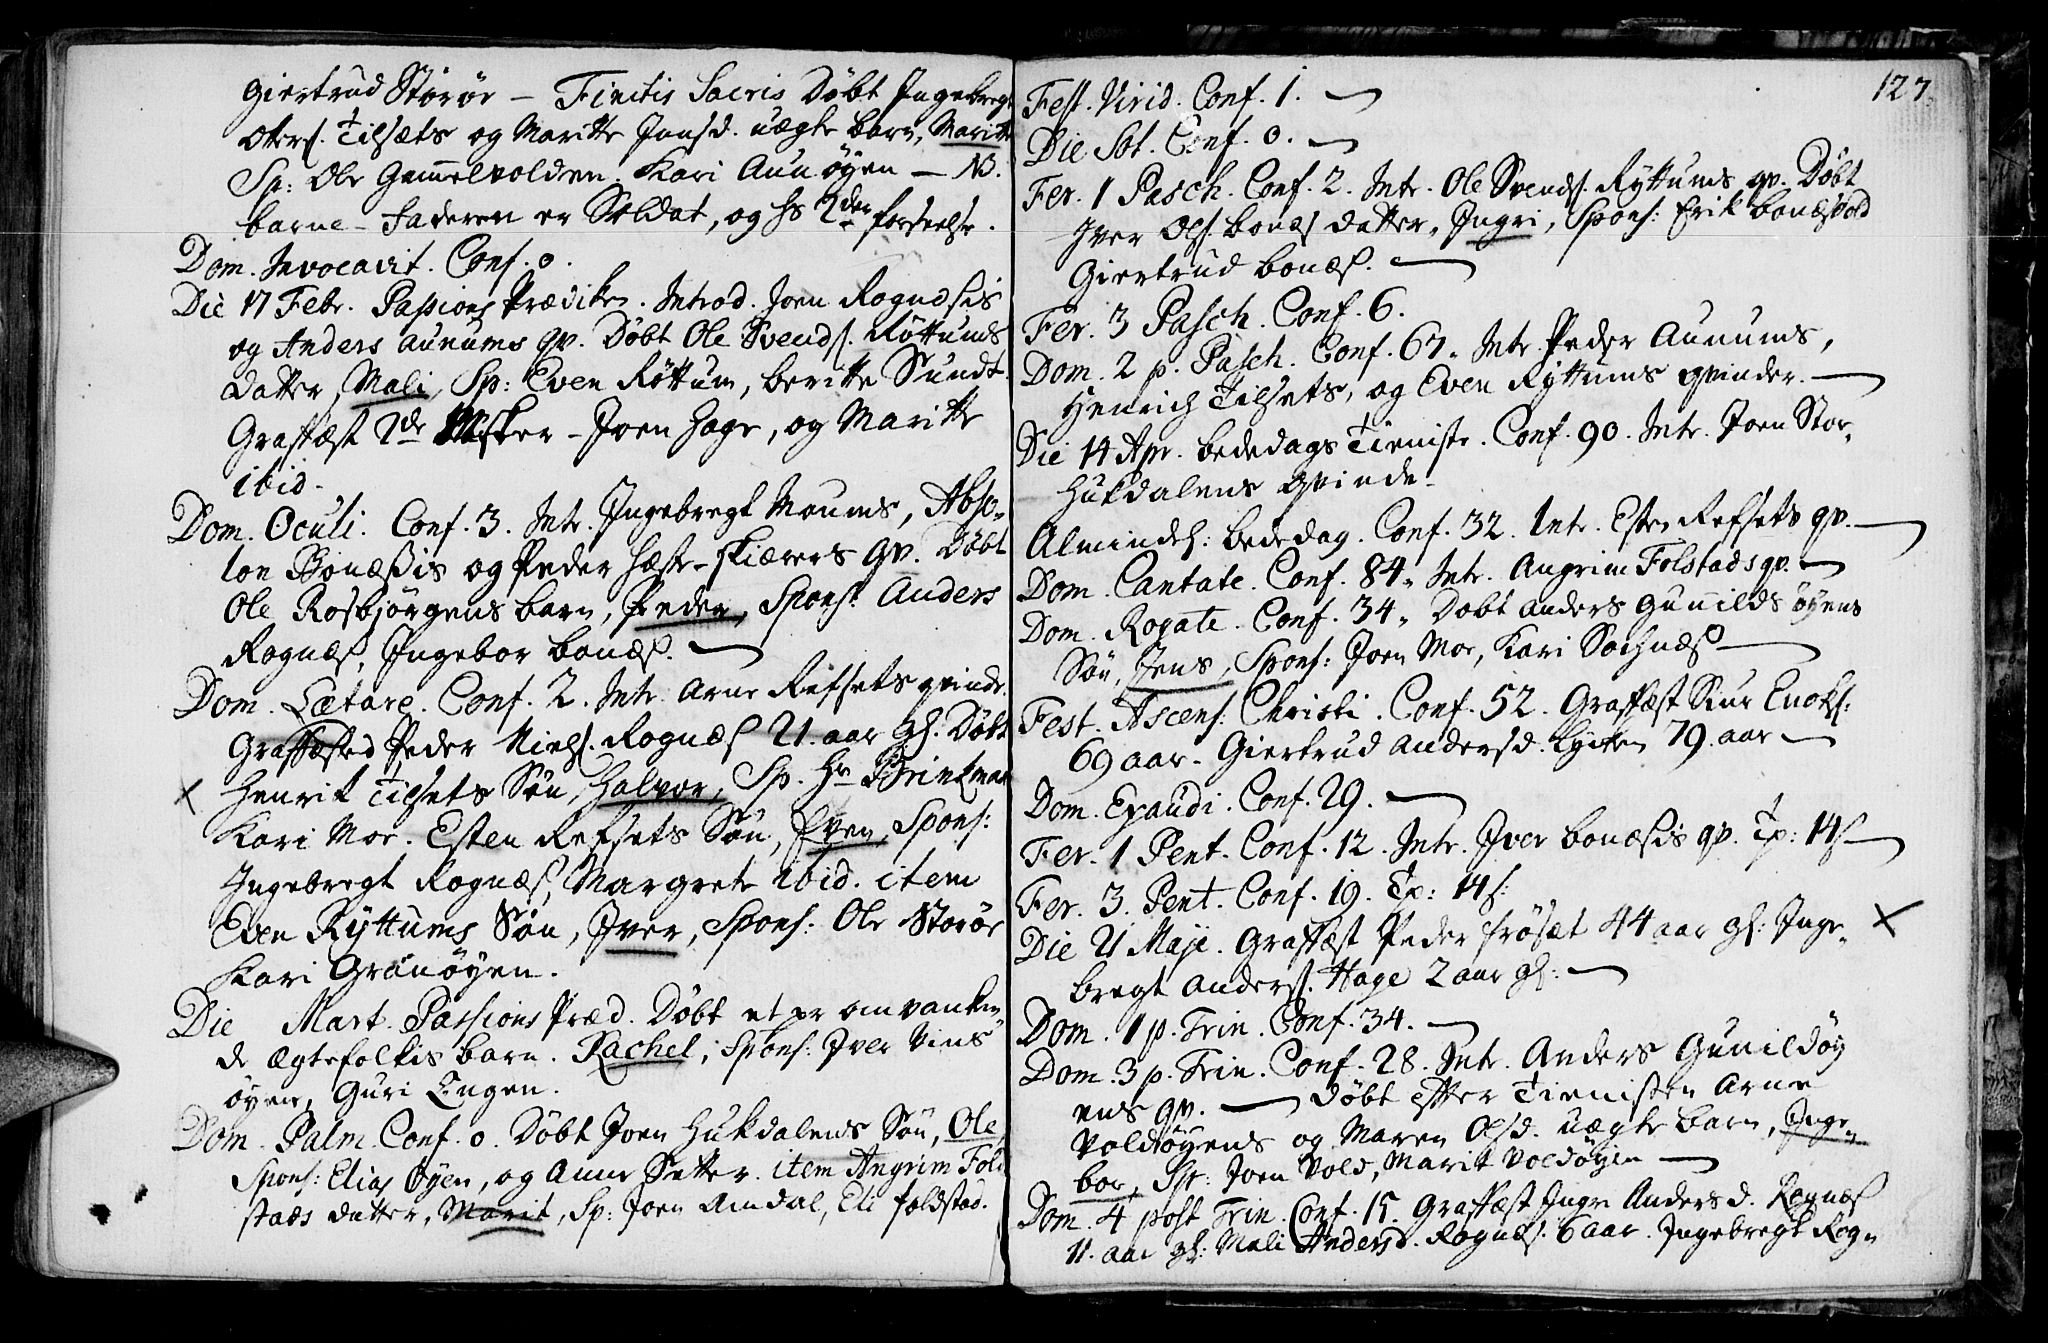 Giertrud Storøe – Finitis Sacris Døbt Ingebregt
Oters. Tilsæts og Maritte Jonsd. uægte barn, Maritte
Sp: Ole Gammelvolden. Kari Aunøyen – NB.
barne-Faderen er Soldat, og hs 2den forseelse.
Dom. Invocavit. Conf. 0.
Die 17 Febr. Passions Prædiken. Introd. Joen Rognæsis
og Anders Aunums qv. Døbt Ole Svends. Røttums
datter, Mali, Sp: Even Røttum, beritte Sundt.
Graffæst 2de - Joen Hage, og Maritte
ibid.
Dom. Oculi. Conf. 3. Intr. Ingebregt Moums, Abso-
lon Bonæssis og Peder Hæste-skiærers qv. Døbt
Ole Rosbjørgens barn, Peder, Spons: Anders
Rognæs, Ingebor bonæs. —
Dom. Lætare. Conf. 2. Intr. Arne Refsets qvinde.
Graffæsted Peder Niels. Rognæs 21. aar gl. Døbt
Henrik Tilsets Søn, Halvor, Sp. Hr Brinkman
Kari Moe. Esten Refsets Søn, Even, Spons:
Ingebregt Rognæs, Margrete ibid. item
Even Ryttums Søn, Iver, Spons: Ole Storøe
Kari Granøyen.
Die Mart. Passions Præd. Døbt et pr omvanken-
de Ægtefolkis barn. Rachel, Spons: Iver Vins
øyen, Guri Engen.
Dom. Palm. Conf. 0. Døbt Joen Hukdalens Søn, Ole,
Spons: Elias Øyen, og Anne Sætter. item Angrim Fol
staðs datter, Marit, Sp: Joen Amdal, Eli foldstad.
127.
Fest. Virid. Conf. 1. —
Die Sbt. Conf. 0. —
Fer. 1 Pasch. Conf. 2. Intr. Ole Svends. Ryttums qv. Døbt
Iver Ols. bonæs datter, Ingri, Spons: Erik bonæsvold
Giertrud bonæs. —
Fer. 3 Pasch. Conf. 6.
Dom. 2 p. Pasch. Conf. 67. Intr. Peder Aunums,
Henrich Tilsets, og Even Ryttums qvinder. —
Die 14 Apr. bededags Tieniste. Conf. 90. Intr. Joen Stor-
Hukdalens qvinde.
Almindel: bededag. Conf. 32. Intr. Esten Refsets qv. —
Dom. Cantate. Conf. 84. Intr. Angrim Folstads qv. —
Dom. Rogate. Conf. 34. Døbt Anders Gunildsøyens
Søn, Jens, Spons: Joen Moe, Kari Sochnæs —
Fest. Ascens: Christi. Conf. 52. Graffæst Siur Enoks:
69 aar. Giertrud Andersd. Lycken 79. aar —
Dom. Exaudi. Conf. 29. —
Fer. 1 Pent. Conf. 12. Intr. Iver bonæsis qv. Tp: 14 s —
Fer. 3. Pent. Conf. 19. Tp: 14 s:
Die 21 Maji. Graffæst Peder frøset 44 aar gl: Inge-
bregt Anders. Hage 2 aar gl: —
Dom. 1 p. Trin. Conf. 34. —
Dom. 3 p. Trin. Conf. 28. Intr. Anders Gunildøy
ens qv. — Døbt efter Tienisten Arne
Voldøyens og Maren Olsd. uægte barn, Inge-
bor, Sp: Joen Vold, Marit Voldøyen —
Dom. 4 post Trin. Conf. 15. Graffæst Inger Andersd. Rognæs
11. aar gl: Mali Andersd. Rognæs. 6 aar. Ingebregt Rog-